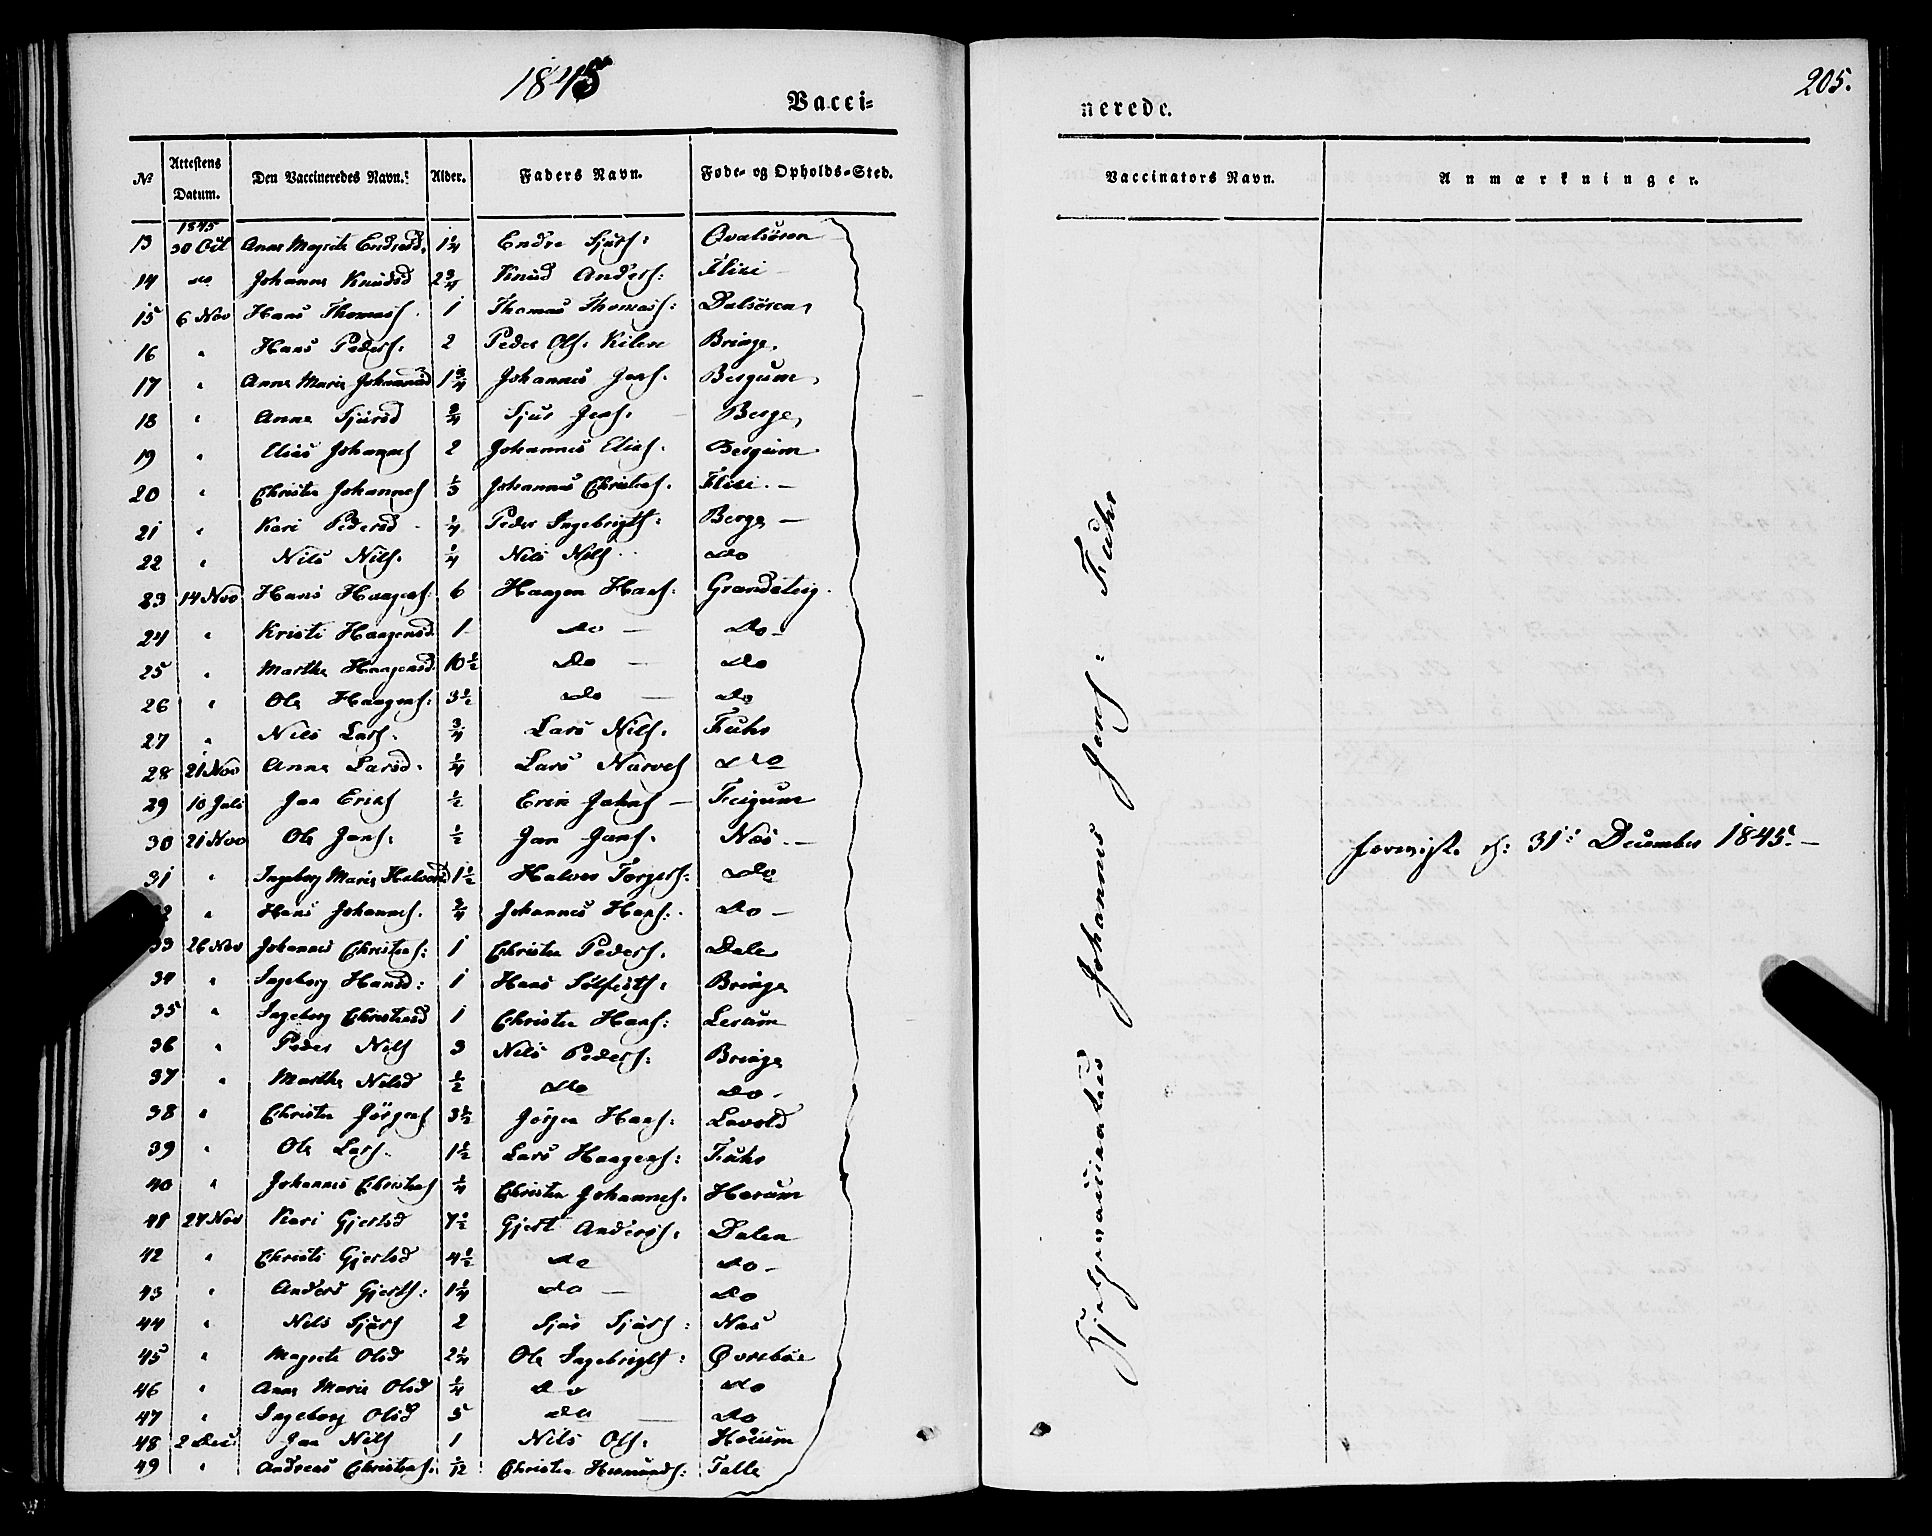 1845
205.
Vacci=
nerede.
№ Attestens Datum. Den Vaccineredes Navn. Alder. Faders Navn. Føde- og Opholds-Sted. Vaccinators Navn. Anmærkninger.
1845
13 30 Oct Anne Magrete Endresd. 1 1/4 Endre Sjurs:
14 do Johanne Knudsd 2 3/4 Knud Anders:
15 6 Nov Hans Thomass 1 Thomas Thomass: Dalsøren
16 " Hans Peders: 2 Peder Ols: Bringe
17 " Anne Marie Johannesd 1 3/4 Johannes Jens. Bergum
18 " Anne Sjursd 3/4 Sjur Jens. Berge
19 " Elias Johannes 2 Johannes Elias. Bergum
20 " Christen Johannes 1/3 Johannes Christens.
21 " Kari Pedersd 1/4 Peder Ingebrigts: Berge
22 " Nils Nils. 1/4 Nils Nils Do
23 14 Nov Hans Haagens: 6 Haagen Hans.
24 " Kristi Haagensd 1 Do Do
25 " Marthe Haagensd 10 1/2 Do Do
26 " Ole Haagens: 3 1/2 Do Do
27 " Nils Lars. 3/4 Lars Nils. Fuhr
28 21 Nov Anne Larsd. 1/4 Lars Narves Do
29 10 Juli Jan Eriks 1/2 Erik Johns Feigum
30 21 Nov Ole Jans: 1/2 Jan Jans. Næs.
31 " Ingeborg Marie Halvorsd 1 1/2 Halvor Torgers: Do
" Hans Johannes. 3/4 Johannes Hans. Do
33 26 Nov Johannes Christens: 1 Christen Peders. Dale
34 " Ingeborg Hansd: 1 Hans Solfests: Bringe
35 " Ingeborg Christensd 1 Christen Hans: Lerum
36 " Peder Nils 3 Nils Peders: Bringe
37 " Marthe Nilsd 1/2 Do Do
38 " Christen Jörgens 3 1/2 Jörgen Hans:
39 " Ole Lars. 1 1/2 Lars Haagens: Fuhr
40 " Johannes Christens 1/4 Christen Johannes.
41 27 Nov Kari Gjertsd 7 1/2 Gjert Anders. Dalen
42 " Christi Gjertsd 4 1/2 do Do
43 " Anders Gjerts: 1 1/4 do Do
44 " Nils Sjurs 2 Sjur Sjurs: Næs
45 " Magrete Olsd 2 1/4 Ole Ingebrigts: Øvrebøe
46 " Anne Marie Olsd 1/4 do do
47 " Ingeborg Olsd 5 do do
48 2 Dec Jan Nils 1 Nils Ols.
49 " Andreas Christens. 1/12 Christen Hermunds:
Hjelpevaccinateur Johannes Jans: Fuhr
31: December 1845.